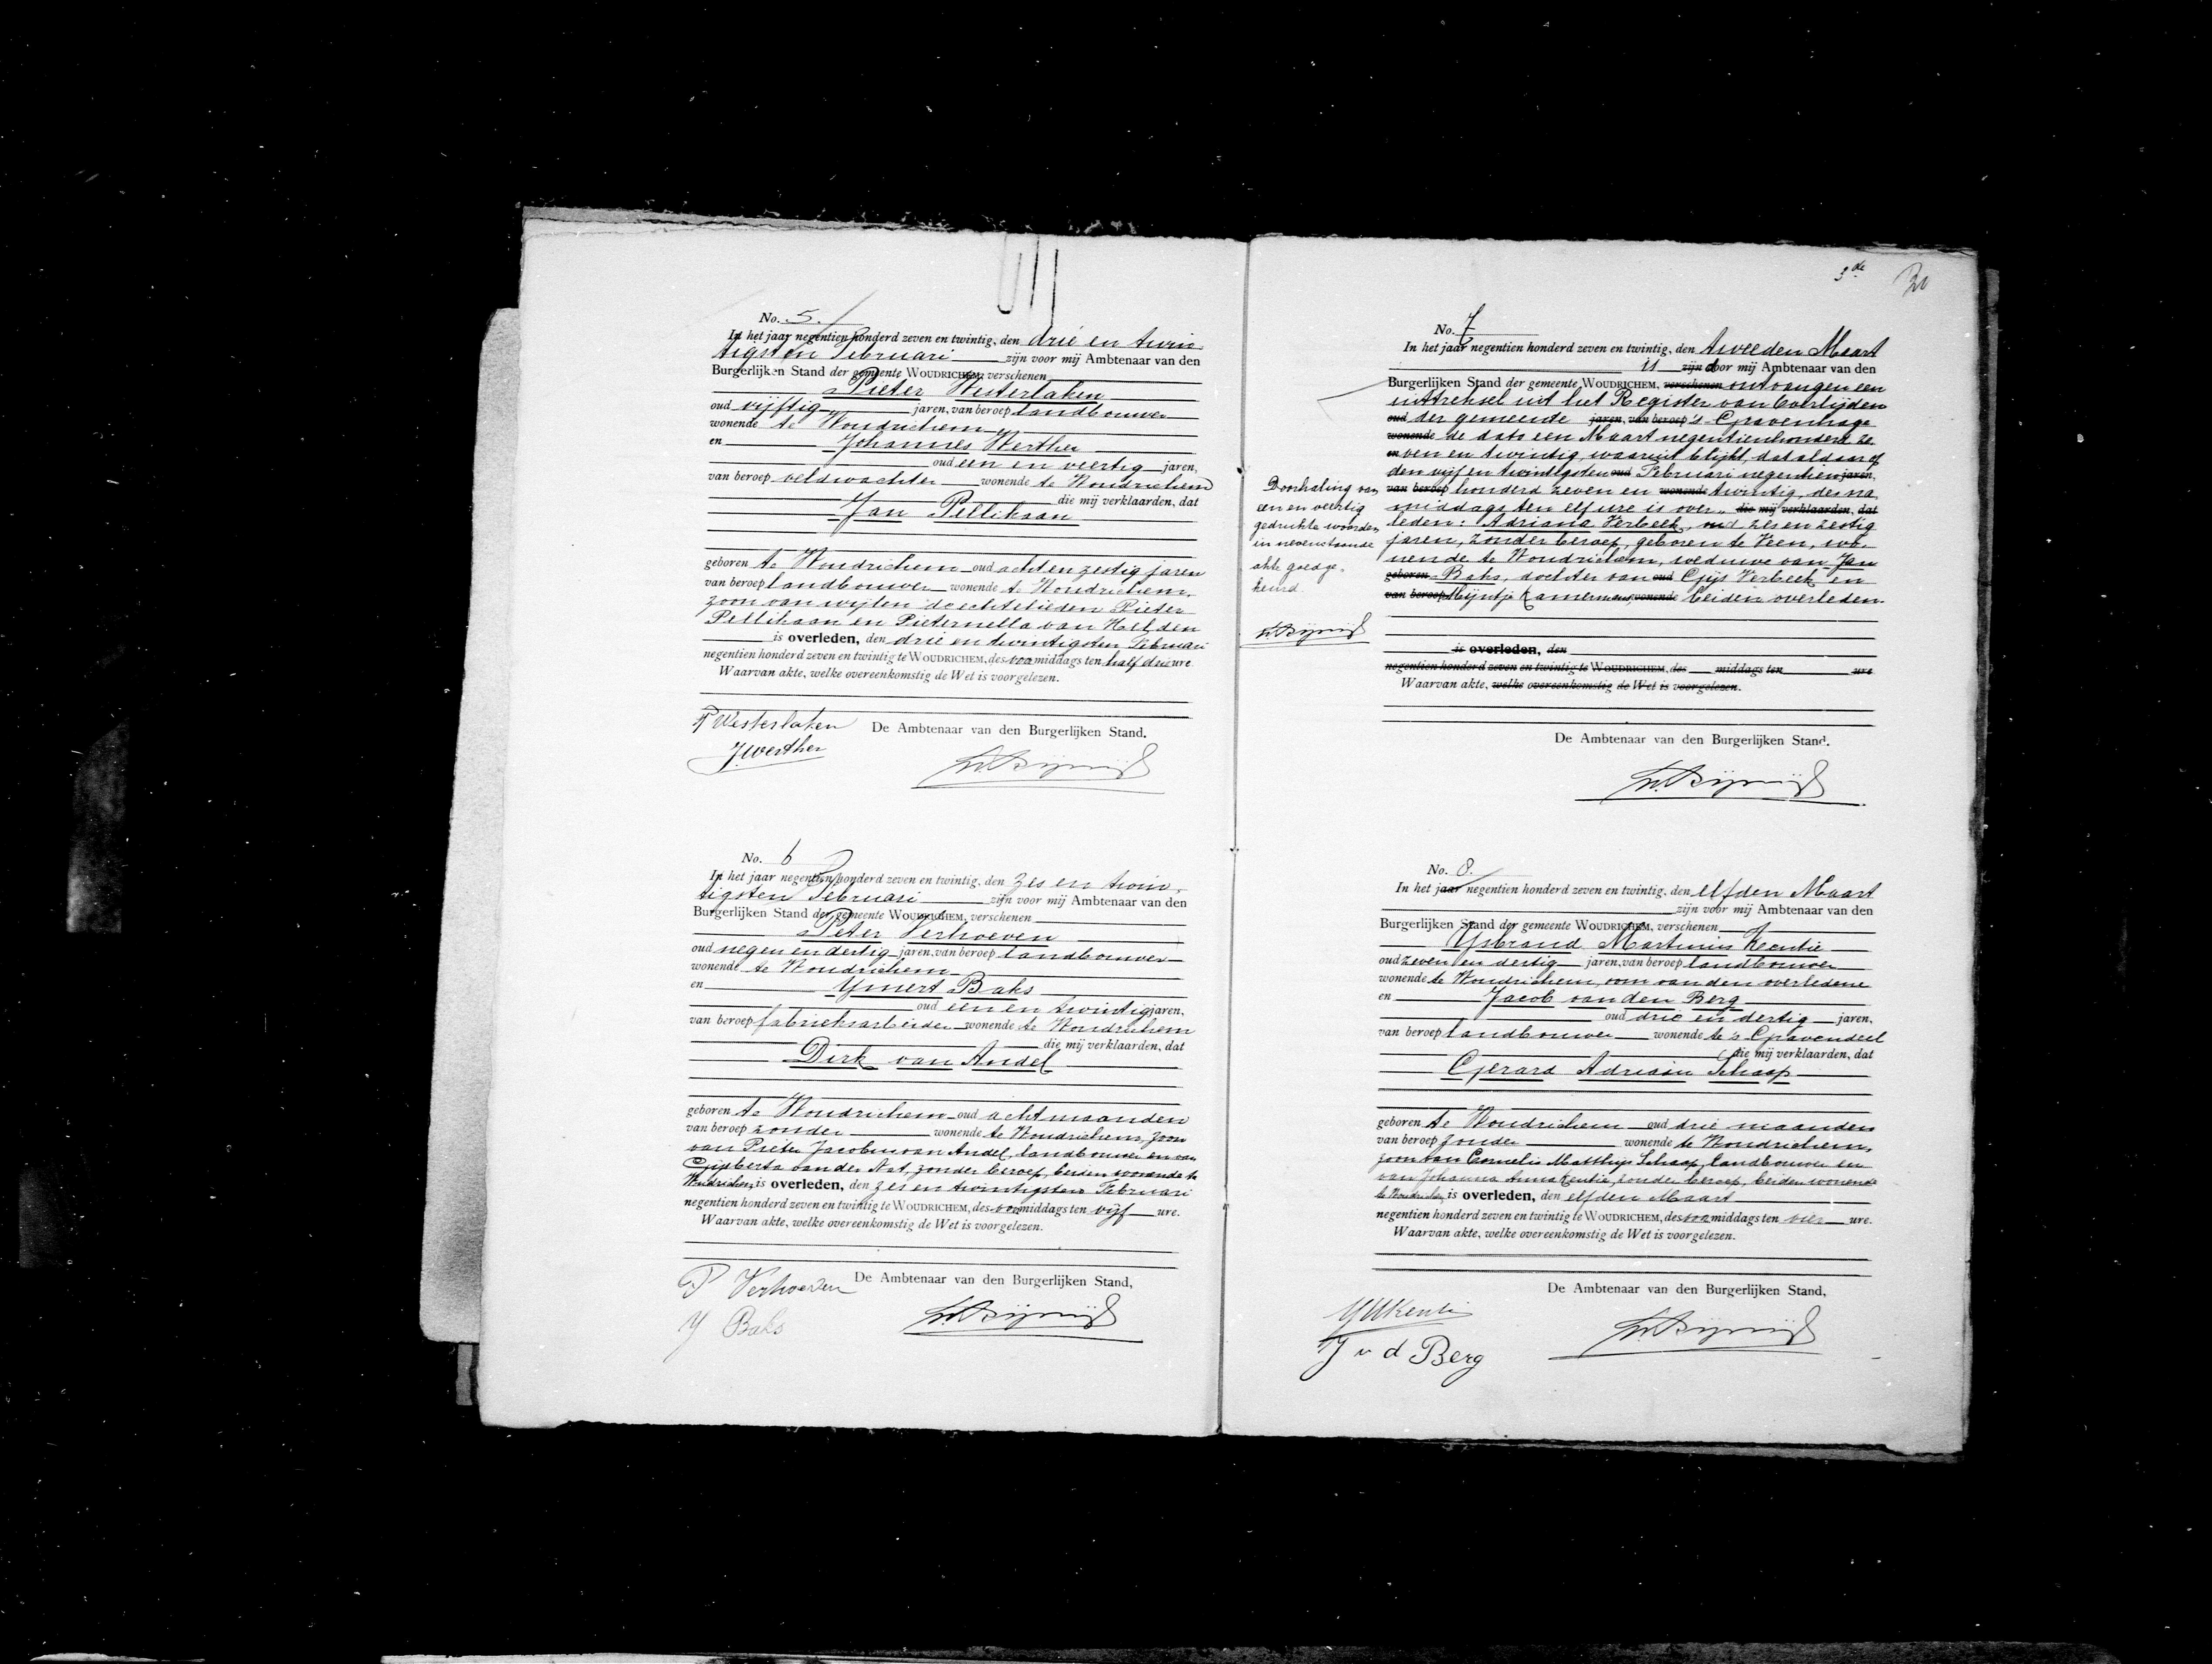 No. 5.
In het jaar negentien honderd zeven en twintig, den drie en twin-
tigsten Februari zijn voor mij Ambtenaar van den
Burgerlijken Stand der gemeente WOUDRICHEM, verschenen
Pieter Westerlaken
oud vijftig jaren, van beroep landbouwer
wonende te Woudrichem
en Johannes Werther
oud een en veertig jaren,
van beroep veldwachter wonende te Woudrichem
die mij verklaarden, dat
Jan Pellikaan
geboren te Woudrichem oud acht en zestig jaren
van beroep landbouwer wonende te Woudrichem,
zoon van wijlen de echtelieden Pieter
Pellikaan en Pieternella van Helden
is overleden, den drie en twintigsten Februari
negentien honderd zeven en twintig te WOUDRICHEM, des voormiddags ten half drie ure
Waarvan akte, welke overeenkomstig de Wet is voorgelezen.
P Westerlaken De Ambtenaar van den Burgerlijken Stand.
J Werther
No. 6
In het jaar negentien honderd zeven en twintig, den zes en twin-
tigsten Februari zijn voor mij Ambtenaar van den
Burgerlijken Stand der gemeente WOUDRICHEM, verschenen
Peter Verhoeven
oud negen en dertig jaren, van beroep landbouwer
wonende te Woudrichem
en Ymert Baks
oud een en twintig jaren,
van beroep fabrieksarbeider wonende te Woudrichem
die mij verklaarden, dat
Dirk van Andel
geboren te Woudrichem oud acht maanden
van beroep zonder wonende te Woudrichem, zoon
van Pieter Jacobus van Andel, landbouwer en van
Gijsberta van der Stat, zonder beroep, beiden wonende te
Woudrichem, is overleden, den zes en twintigsten Februari
negentien honderd zeven en twintig te WOUDRICHEM, des voormiddags ten vijf ure.
Waarvan akte, welke overeenkomstig de Wet is voorgelezen.
P Verhoeven De Ambtenaar van den Burgerlijken Stand,
Y Baks
3de
No. 7
In het jaar negentien honderd zeven en twintig, den tweeden Maart
is zijn door mij Ambtenaar van den
Burgerlijken Stand der gemeente WOUDRICHEM, verschenen ontvangen een
uittreksel uit het Register van Overlijden
oud der gemeente jaren, van beroep 's Gravenhage
wonende de dato een Maart negentienhonderd ze-
en ven en twintig, waaruit blijkt, dat aldaar op
den vijf en twintigsten oud Februari negentien jaren,
van beroep honderd zeven en wonende twintig, des na-
middags ten elf ure is over- die mij verklaarden, dat
leden: Adriana Verbeek, oud zes en zestig
jaren, zonder beroep, geboren te Veen, wo-
nende te Woudrichem, weduwe van Jan
geboren Baks, dochter van oud Gijs Verbeek en
van beroep Mijntje Kamerman, wonende beiden overleden.
is overleden, den
negentien honderd zeven en twintig te WOUDRICHEM, des middags ten ure
Waarvan akte, welke overeenkomstig de Wet is voorgelezen.
De Ambtenaar van den Burgerlijken Stand.
Doorhaling van
een en veertig
gedrukte woorden
in nevenstaande
akte goedge-
keurd.
No. 8.
In het jaar negentien honderd zeven en twintig, den elfden Maart
zijn voor mij Ambtenaar van den
Burgerlijken Stand der gemeente WOUDRICHEM, verschenen
IJsbrand Martinus Kentie
oud zeven en dertig jaren, van beroep landbouwer
wonende te Woudrichem, oom van den overledene
en Jacob van den Berg
oud drie en dertig jaren,
van beroep landbouwer wonende te 's Gravendeel
die mij verklaarden, dat
Gerard Adriaan Schaap
geboren te Woudrichem oud drie maanden
van beroep zonder wonende te Woudrichem,
zoon van Cornelis Matthijs Schaap, landbouwer en
van Johanna Anna Kentie, zonder beroep, beiden wonende
te Woudrichem, is overleden, den elfden Maart
negentien honderd zeven en twintig te WOUDRICHEM, des voormiddags ten vier ure.
Waarvan akte, welke overeenkomstig de Wet is voorgelezen.
De Ambtenaar van den Burgerlijken Stand,
YMKentie
J v d Berg